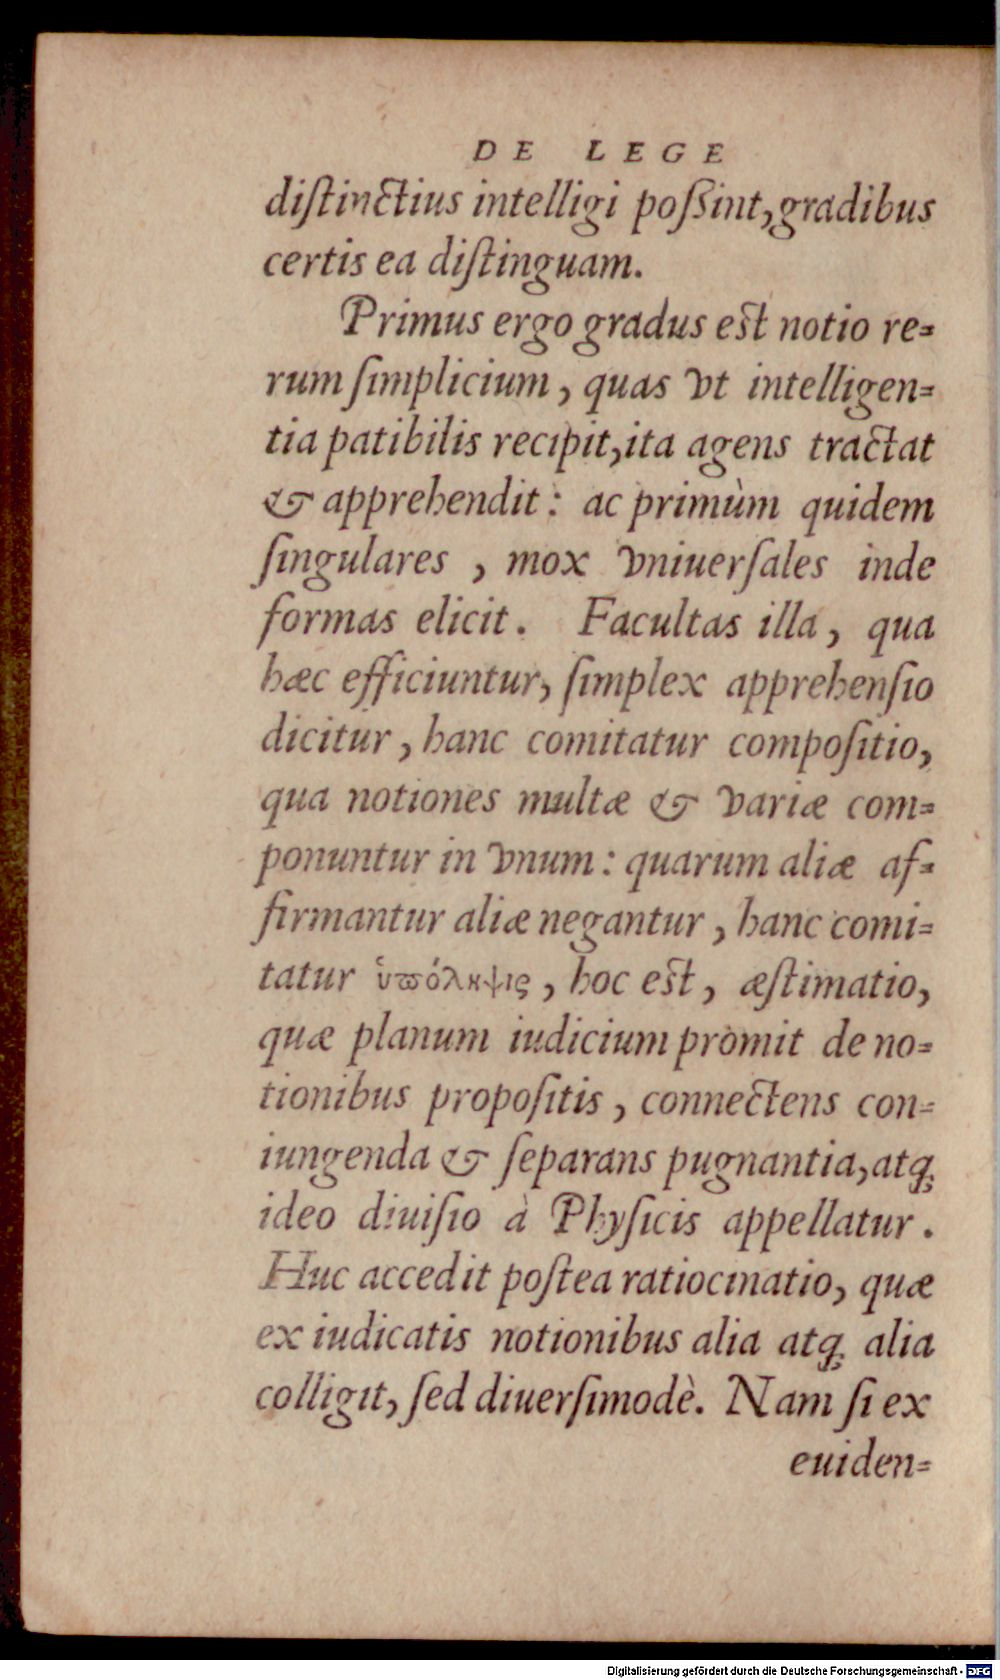 DE LEGE
diſtinctius intelligi poſſint, gradibus
certis ea diſtinguam.
Primus ergo gradus eſt notio re-
rum ſimplicium, quas vt intelligen-
tia patibilis recipit, ita agens tractat
& apprehendit: ac primùm quidem
ſingulares, mox vniuerſales inde
formas elicit. Facultas illa, qua
hæc efficiuntur, ſimplex apprehenſio
dicitur, hanc comitatur compoſitio,
qua notiones multæ & variæ com-
ponuntur in vnum: quarum aliæ af-
firmantur aliæ negantur, hanc comi-
tatur ὑπόληψις, hoc eſt, æſtimatio,
quæ planum iudicium promit de no-
tionibus propoſitis, connectens con-
iungenda & ſeparans pugnantia, atq;
ideo diuiſio à Phyſicis appellatur.
Huc accedit poſtea ratiocinatio, quæ
ex iudicatis notionibus alia atq; alia
colligit, ſed diuerſimodè. Nam ſi ex
euiden-
Digitalisierung gefördert durch die Deutsche Forschungsgemeinschaft - DFG